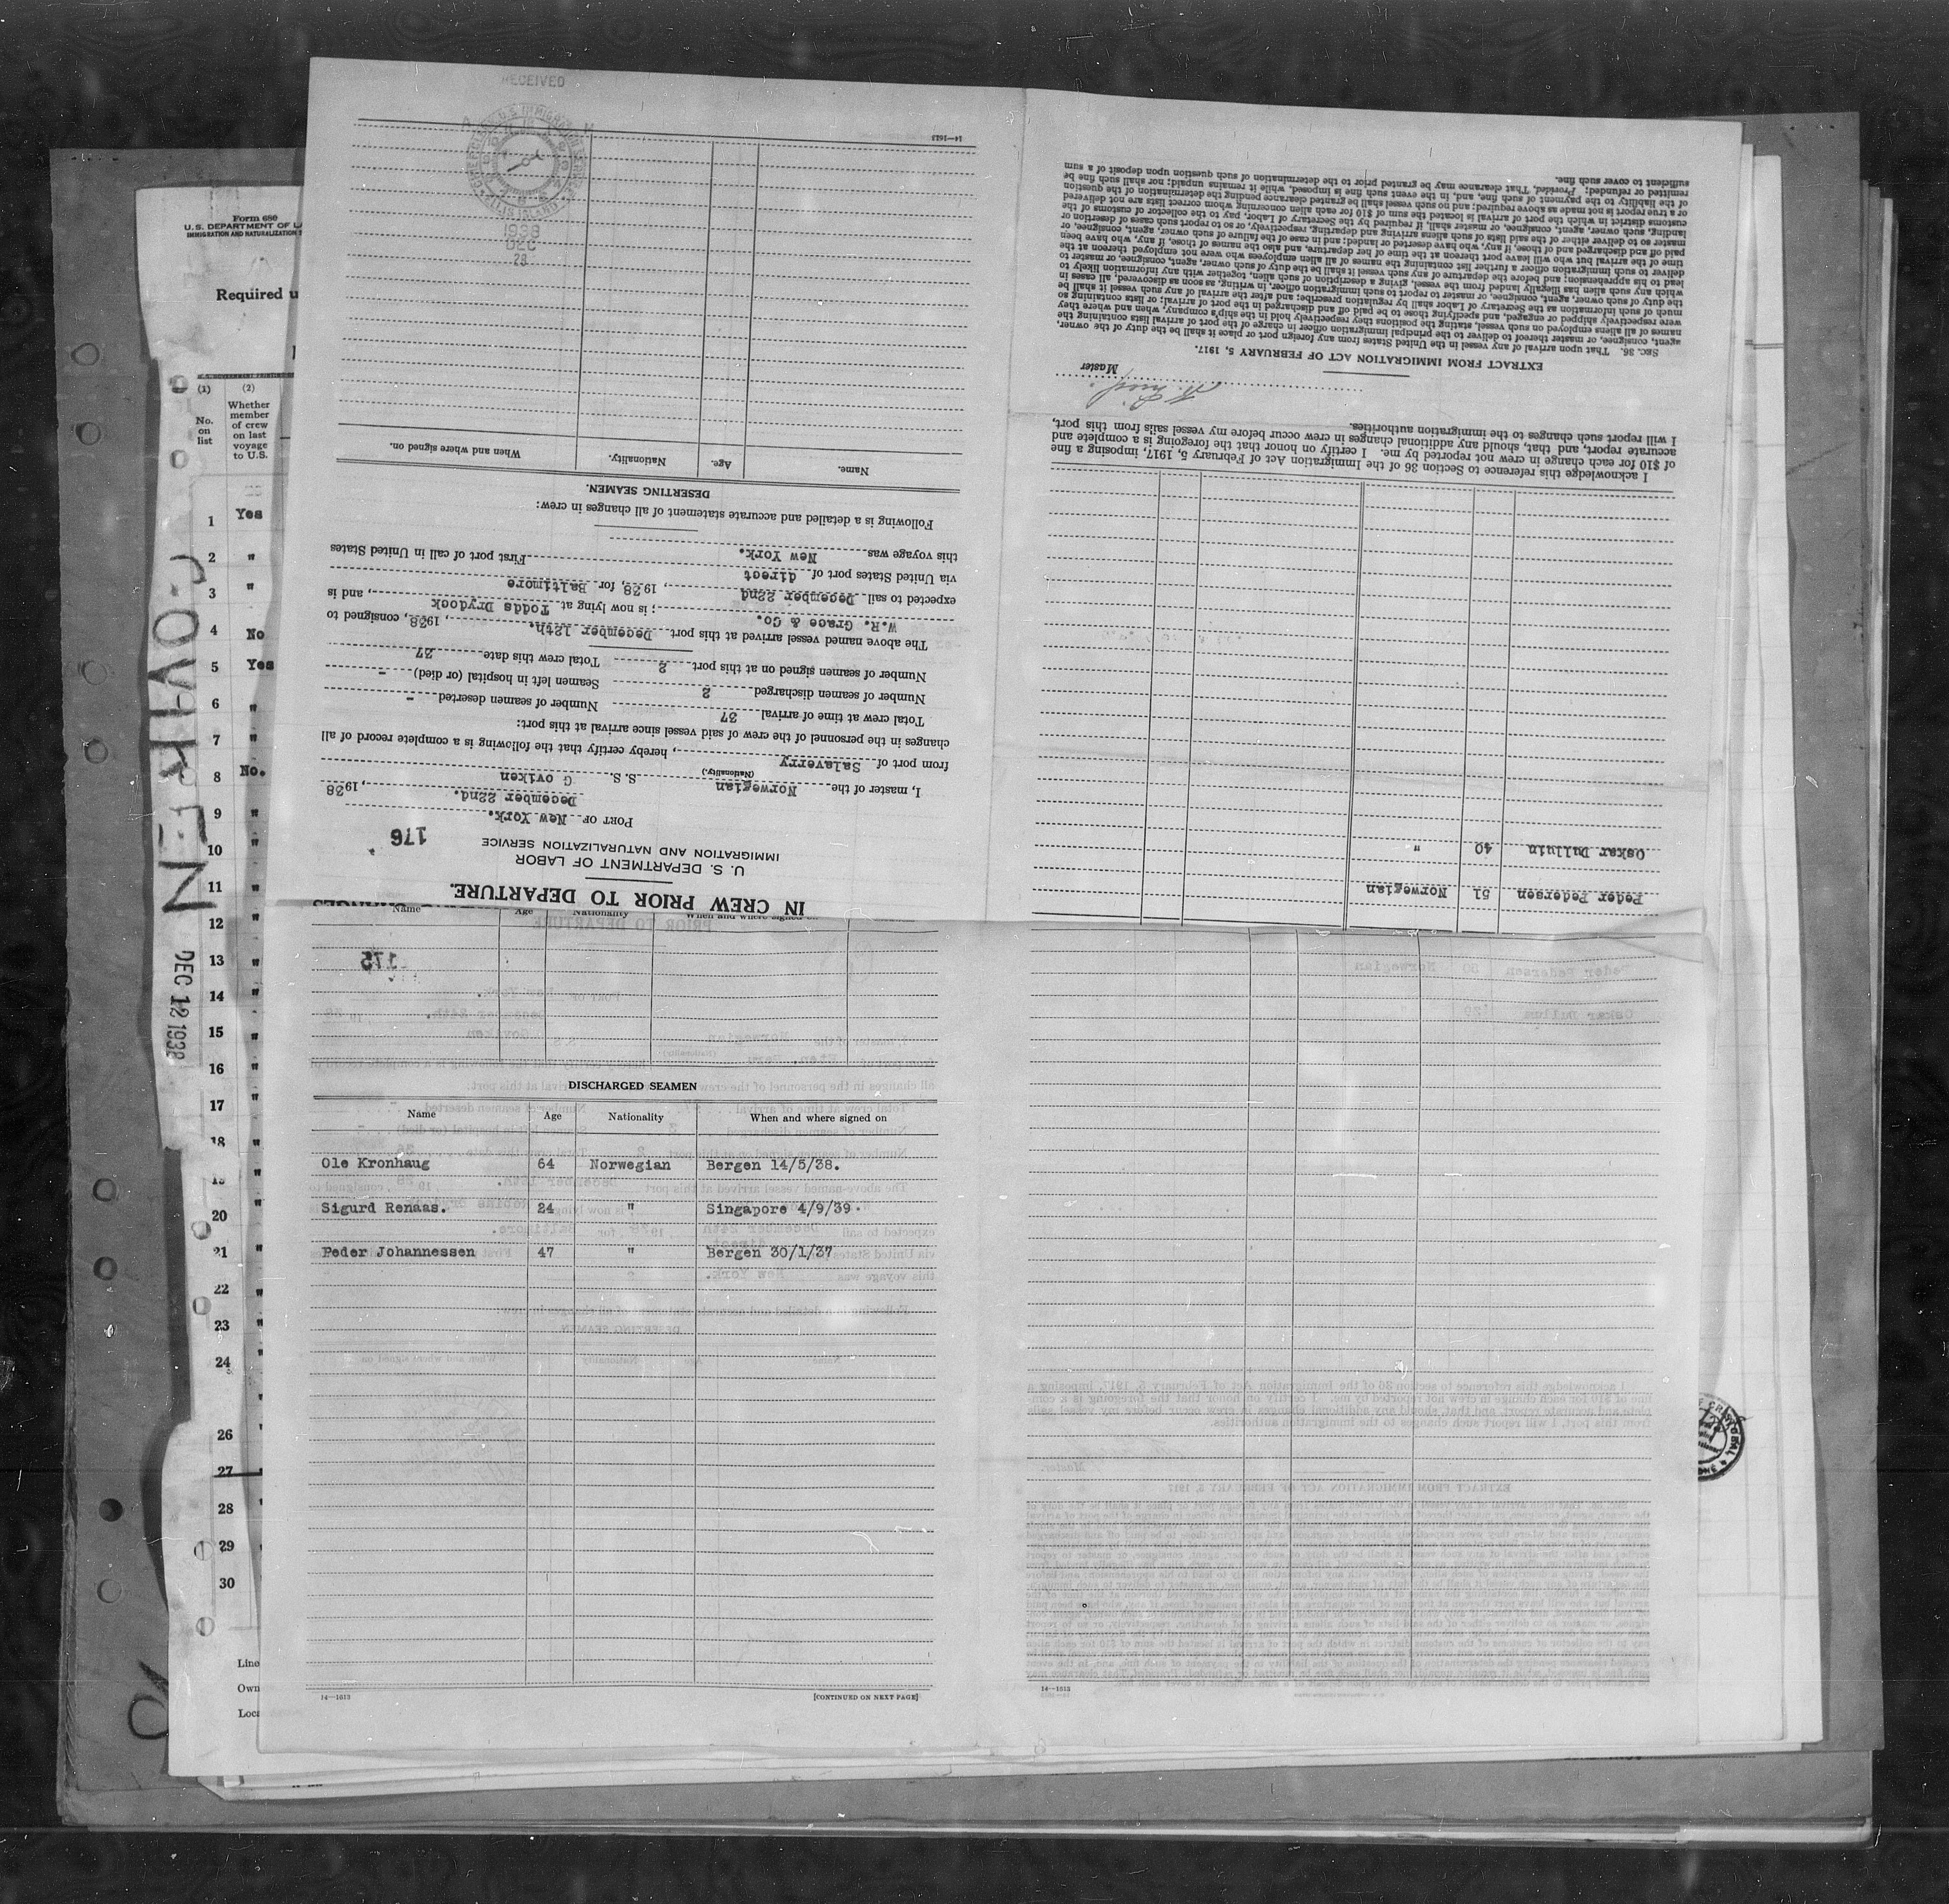 Form 680
U.S. DEPARTMENT OF LA
IMMIGRATION AND NATURALIZATION S
Required u
(1) (2)
No. on list
Whether member of crew on last voyage to U.S.
1 Yes
2 "
3 "
4 No
5 Yes
6 "
7 "
8 No.
9 "
10 "
11 "
12 "
13 "
14 "
15 "
16 "
17 "
18 "
19 "
20 "
21 "
22 "
23 "
24 "
26 "
27 "
28
29
30
Line
Own
Loca
DEC 12 1938
IN CREW PRIOR TO DEPARTURE.
U. S. DEPARTMENT OF LABOR
IMMIGRATION AND NATURALIZATION SERVICE
176
PORT OF New York.
December 22nd. , 1938
I, master of the Norwegian S. S. G oviken
(Nationality.)
from port of Salaverry , hereby certify that the following is a complete record of all
changes in the personnel of the crew of said vessel since arrival at this port:
Total crew at time of arrival 37 Number of seamen deserted -
Number of seamen discharged 2 Seamen left in hospital (or died) -
Number of seamen signed on at this port 2 Total crew this date 37
The above named vessel arrived at this port December 12th. , 1938, consigned to
W.R. Grace & Co. ; is now lying at Todds Drydock , and is
expected to sail December 22nd , 1938, for Baltimore
via United States port of direct
First port of call in United States
this voyage was New York.
Following is a detailed and accurate statement of all changes in crew:
DESERTING SEAMEN.
Name. Age. Nationality. When and where signed on.
14—1613
RECEIVED
U.S. IMMIGRATION SERVICE
ELLIS ISLAND
1938
DEC
23
Peder Pedersen 51 Norwegian
Oskar Dulluin 40 "
I acknowledge this reference to Section 36 of the Immigration Act of February 5, 1917, imposing a fine
of $10 for each change in crew not reported by me. I certify on honor that the foregoing is a complete and
accurate report, and that, should any additional changes in crew occur before my vessel sails from this port,
I will report such changes to the immigration authorities.
Master
EXTRACT FROM IMMIGRATION ACT OF FEBRUARY 5, 1917.
SEC. 36. That upon arrival of any vessel in the United States from any foreign port or place it shall be the duty of the owner,
agent, consignee, or master thereof to deliver to the principal immigration officer in charge of the port of arrival lists containing the
names of all aliens employed on such vessel, stating the positions they respectively hold in the ship's company, when and where they
were respectively shipped or engaged, and specifying those to be paid off and discharged in the port of arrival; or lists containing so
much of such information as the Secretary of Labor shall by regulation prescribe; and after the arrival of any such vessel it shall be
the duty of such owner, agent, consignee, or master to report to such immigration officer, in writing, as soon as discovered, all cases in
which any such alien has illegally landed from the vessel, giving a description of such alien, together with any information likely to
lead to his apprehension; and before the departure of any such vessel it shall be the duty of such owner, agent, consignee, or master to
deliver to such immigration officer a further list containing the names of all alien employees who were not employed thereon at the
time of the arrival but who will leave port thereon at the time of her departure, and also the names of those, if any, who have been
paid off and discharged and of those, if any, who have deserted or landed; and in case of the failure of such owner, agent, consignee, or
master so to deliver either of the said lists of such aliens arriving and departing, respectively, or so to report such cases of desertion or
landing, such owner, agent, consignee, or master shall, if required by the Secretary of Labor, pay to the collector of customs of the
customs district in which the port of arrival is located the sum of $10 for each alien concerning whom correct lists are not delivered
or a true report is not made as above required; and no such vessel shall be granted clearance pending the determination of the question
of the liability to the payment of such fine, and, in the event such fine is imposed, while it remains unpaid; nor shall such fine be
remitted or refunded; Provided, That clearance may be granted prior to the determination of such question upon deposit of a sum
sufficient to cover such fine.
Name Age Nationality When and where signed on
175
DISCHARGED SEAMEN
Name Age Nationality When and where signed on
Ole Kronhaug 64 Norwegian Bergen 14/5/38.
Sigurd Renaas. 24 " Singapore 4/9/39.
Peder Johannessen 47 " Bergen 30/1/37
14—1613
[CONTINUED ON NEXT PAGE]
14—1613